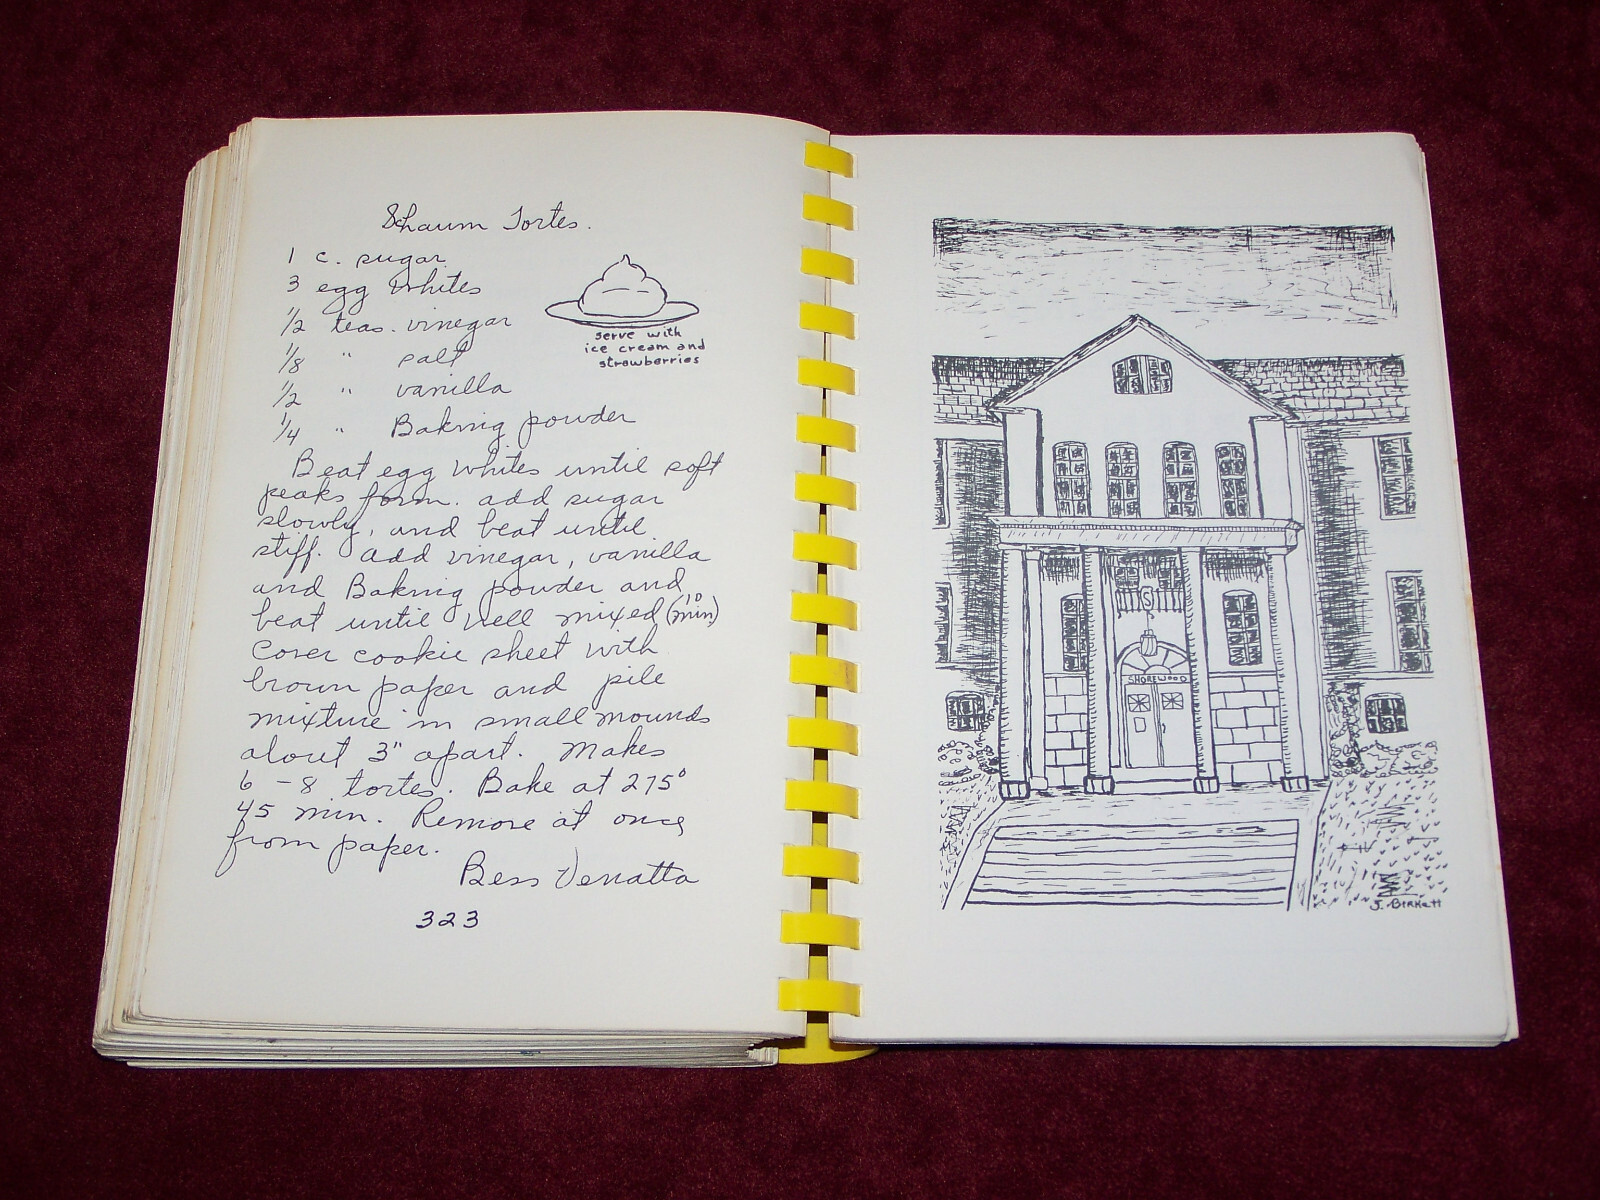 Schaum Tortes.
1 c. sugar
3 egg whites
1/2 teas. vinegar
1/8 " salt
1/2 " vanilla
1/4 " Baking powder
serve with
ice cream and
strawberries
Beat egg whites until soft
peaks form. add sugar
slowly, and beat until
stiff. add vinegar, vanilla
and Baking powder and
beat until well mixed (10 min)
Cover cookie sheet with
brown paper and pile
mixture in small mounds
about 3" apart. Makes
6 - 8 tortes. Bake at 275°
45 min. Remove at once
from paper.
Bess Venatta
323
S
SHOREWOOD
J. Birkett